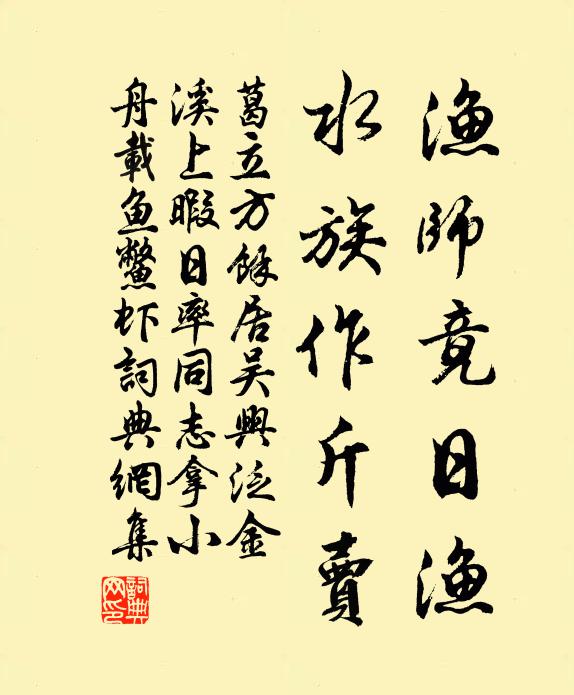 漁師竟日漁
水族作斤賣
葛立方餘居吴興泛金
溪上暇日率同志拿小
舟載魚鱉虾詞典網集
詞典網印